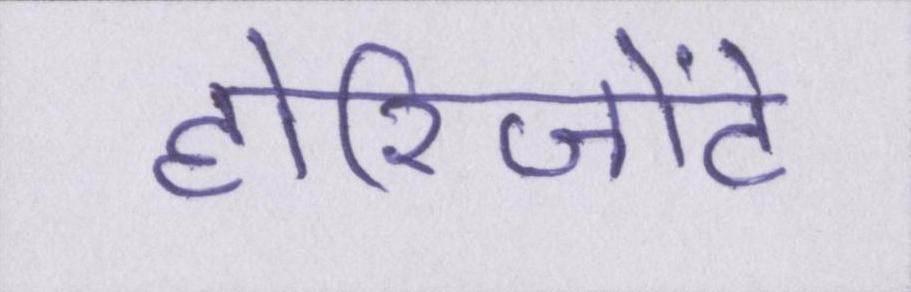 होरिजोंटे